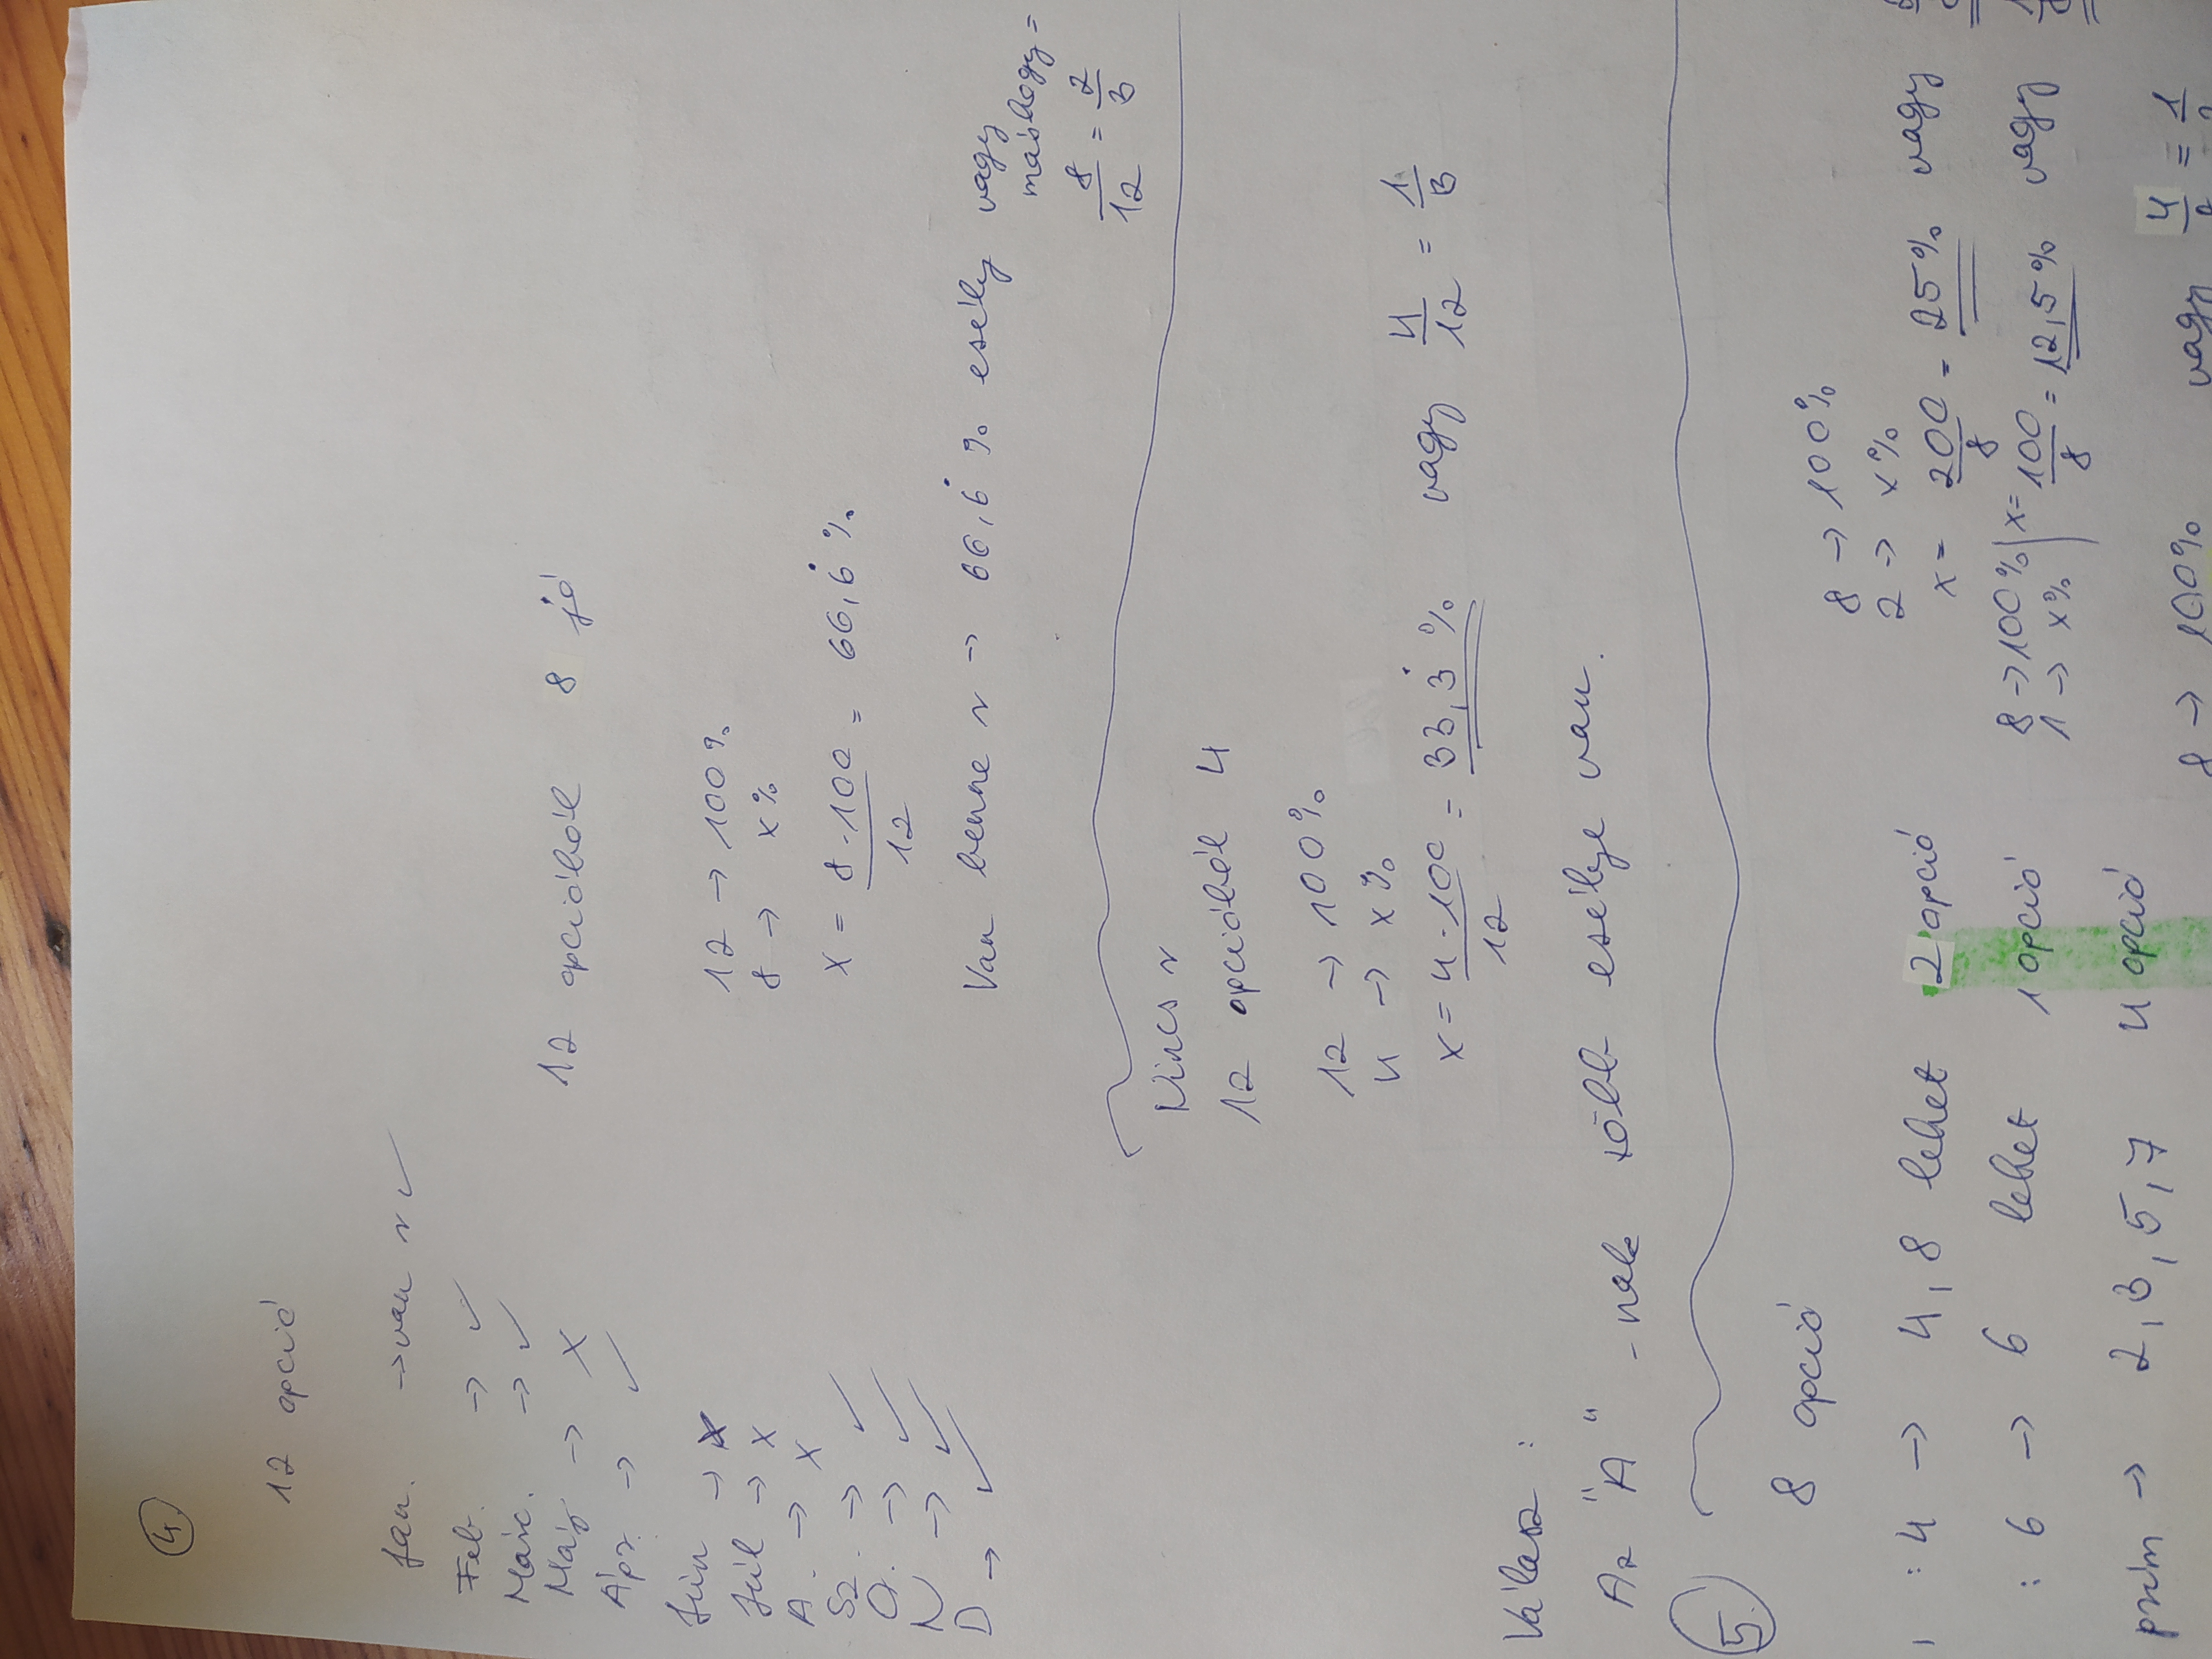 4.
12 opció
Jan. → van r ✓
Feb. → ✓
Márc. → ✓
Máj → X
Ápr. → ✓
Jún → X
Júl → X
A. → X
Sz. → ✓
O. → ✓
N → ✓
D → ✓
12 opcióból 8 jó
12 → 100%
8 → x%
x = 8·100 / 12 = 66,6̇ %
Van benne r → 66,6̇ % esély vagy
máshogy =
8/12 = 2/3
Nincs r
12 opcióból 4
12 → 100%
4 → x%
x = 4·100 / 12 = 33,3̇ % vagy 4/12 = 1/3
Válasz:
Az "A" -nak több esélye van.
5.
8 opció
8 → 100%
2 → x%
: 4 → 4, 8 lehet 2 opció x = 200/8 = 25% vagy
: 6 → 6 lehet 1 opció 8 → 100% | x = 100/8 = 12,5% vagy
1 → x%
prím → 2, 3, 5, 7 4 opció 8 → 100% vagy 4/8 = 1